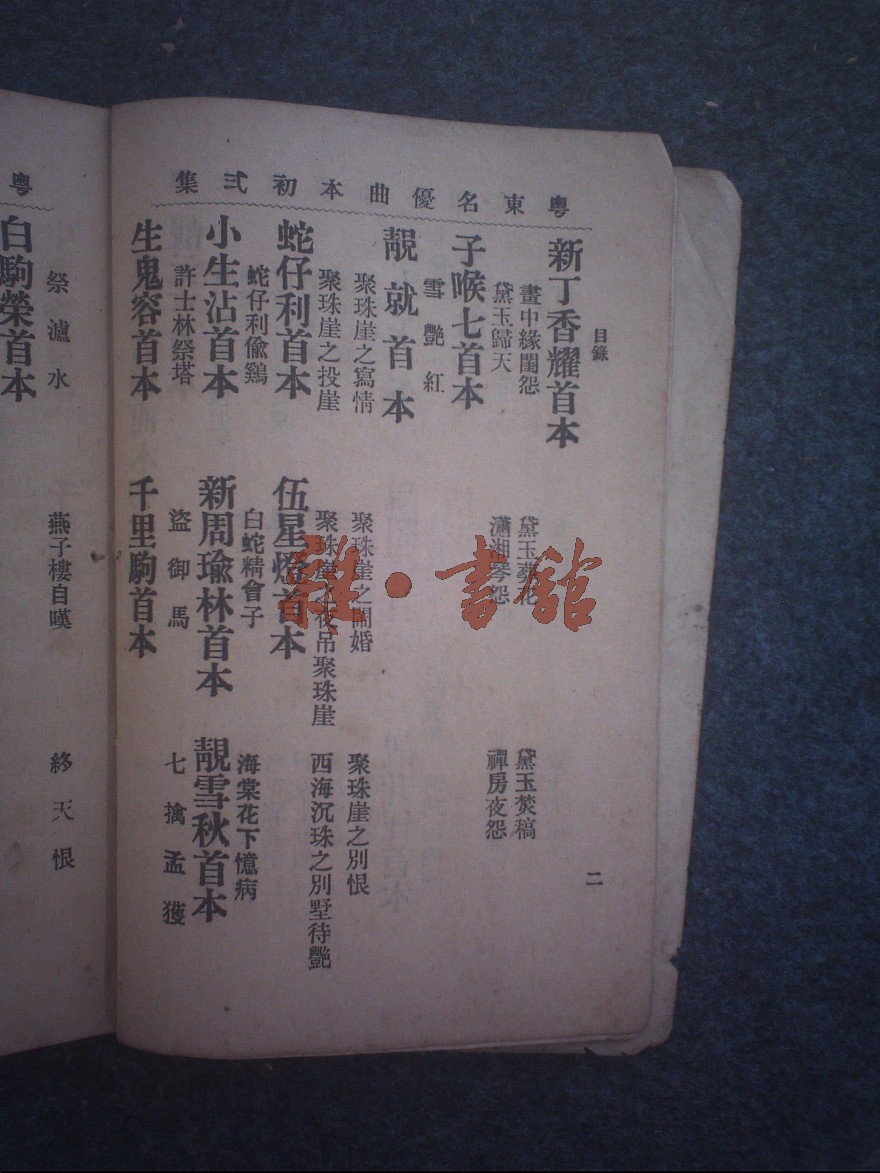 粵東名優曲本初弍集
目錄
二
新丁香耀首本
畫中緣閨怨
黛玉葬花
黛玉焚稿
黛玉歸天
瀟湘琴怨
禪房夜怨
子喉七首本
雪艷紅
靚就首本
聚珠崖之寫情
聚珠崖之鬧婚
聚珠崖之別恨
聚珠崖之投崖
聚珠崖之夜吊聚珠崖
西海沉珠之別墅待艷
蛇仔利首本
伍星燈首本
蛇仔利偸鷄
白蛇精會子
海棠花下憶病
小生沾首本
新周瑜林首本
靚雪秋首本
許士林祭塔
盜御馬
七擒孟獲
生鬼容首本
千里駒首本
粵
祭瀘水
燕子樓自嘆
終天恨
白駒榮首本
雜·書館